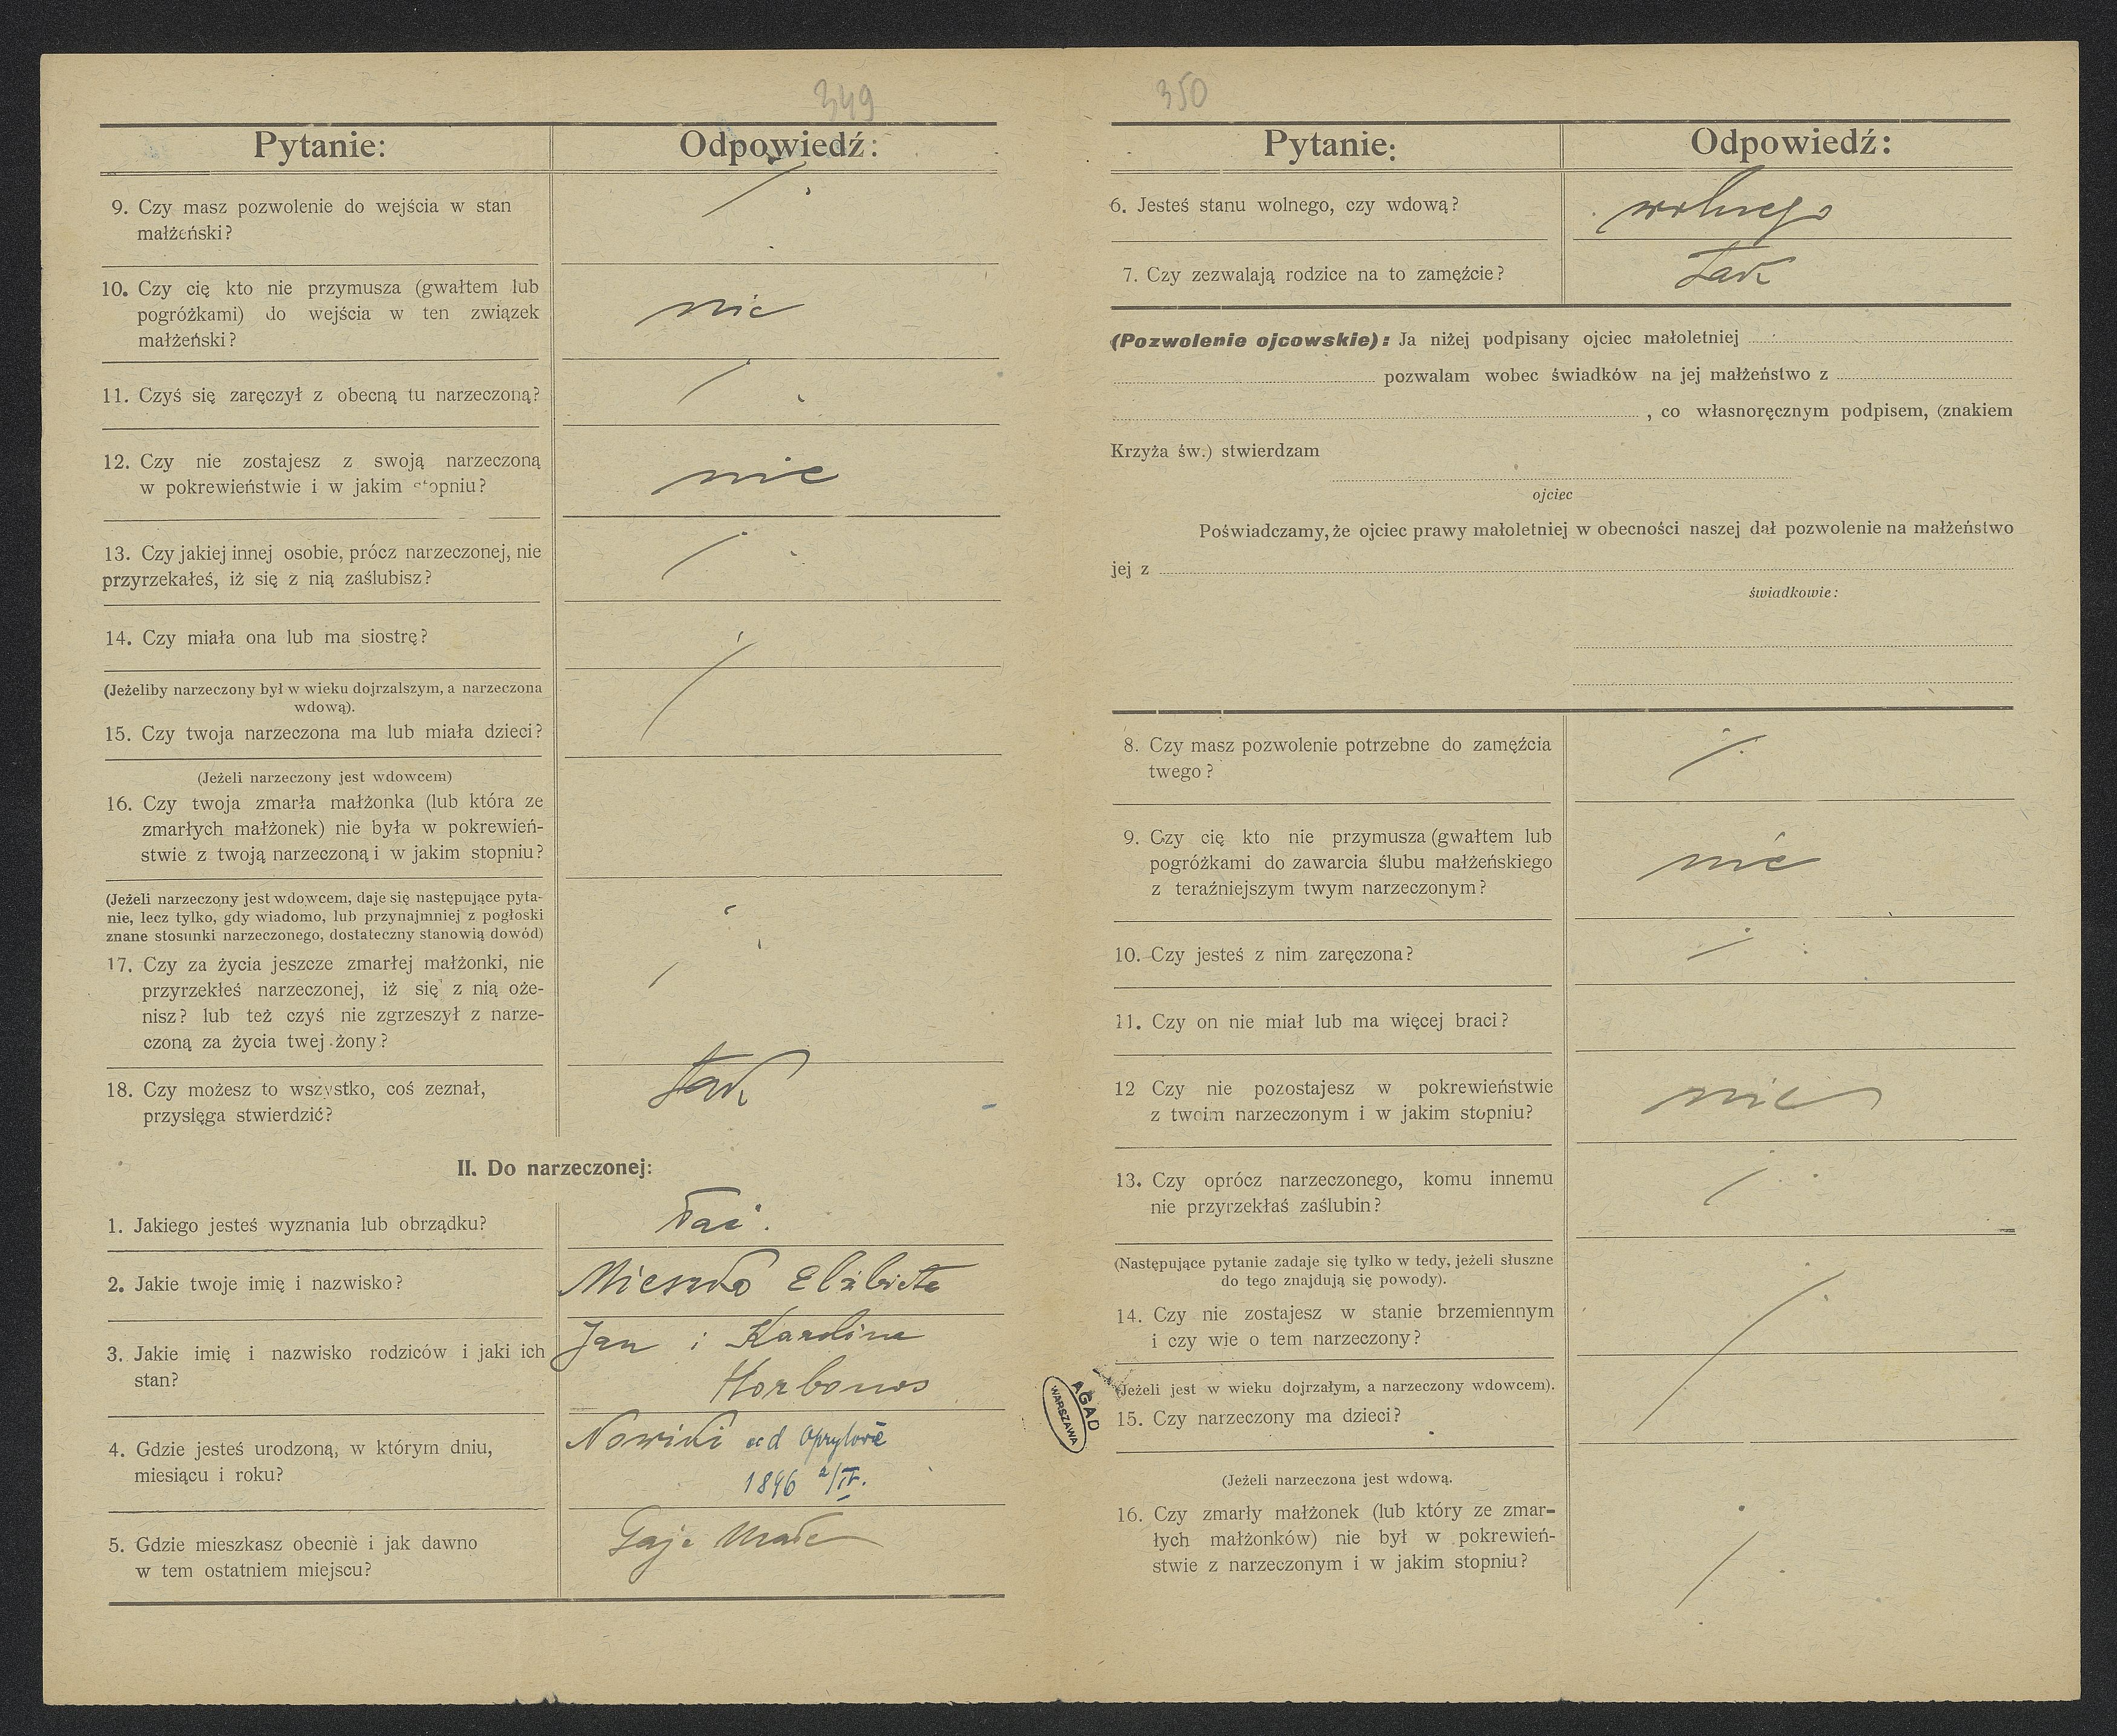 349
Pytanie:
Odpowiedź:
9. Czy masz pozwolenie do wejścia w stan
małżeński?
10. Czy cię kto nie przymusza (gwałtem lub
pogróżkami) do wejścia w ten związek
małżeński?
nie
11. Czyś się zaręczył z obecną tu narzeczoną?
12. Czy nie zostajesz z swoją narzeczoną
w pokrewieństwie i w jakim stopniu?
nie
13. Czy jakiej innej osobie, prócz narzeczonej, nie
przyrzekałeś, iż się z nią zaślubisz?
14. Czy miała ona lub ma siostrę?
(Jeżeliby narzeczony był w wieku dojrzalszym, a narzeczona
wdową).
15. Czy twoja narzeczona ma lub miała dzieci?
(Jeżeli narzeczony jest wdowcem)
16. Czy twoja zmarła małżonka (lub która ze
zmarłych małżonek) nie była w pokrewień-
stwie z twoją narzeczoną i w jakim stopniu?
(Jeżeli narzeczony jest wdowcem, daje się następujące pyta-
nie, lecz tylko, gdy wiadomo, lub przynajmniej z pogłoski
znane stosunki narzeczonego, dostateczny stanowią dowód)
17. Czy za życia jeszcze zmarłej małżonki, nie
przyrzekłeś narzeczonej, iż się z nią oże-
nisz? lub też czyś nie zgrzeszył z narze-
czoną za życia twej żony?
18. Czy możesz to wszystko, coś zeznał,
przysięgą stwierdzić?
tak
II. Do narzeczonej:
1. Jakiego jesteś wyznania lub obrządku?
łac.
2. Jakie twoje imię i nazwisko?
Elżbieta
3. Jakie imię i nazwisko rodziców i jaki ich
stan?
Jan i Karolina
4. Gdzie jesteś urodzoną, w którym dniu,
miesiącu i roku?
1896 2/IV.
5. Gdzie mieszkasz obecnie i jak dawno
w tem ostatniem miejscu?
Gaje Małe
350
Pytanie:
Odpowiedź:
6. Jesteś stanu wolnego, czy wdową?
wolnego
7. Czy zezwalają rodzice na to zamęźcie?
Tak
(Pozwolenie ojcowskie): Ja niżej podpisany ojciec małoletniej
pozwalam wobec świadków na jej małżeństwo z
, co własnoręcznym podpisem, (znakiem
Krzyża św.) stwierdzam
ojciec
Poświadczamy, że ojciec prawy małoletniej w obecności naszej dał pozwolenie na małżeństwo
jej z
świadkowie:
8. Czy masz pozwolenie potrzebne do zamęźcia
twego?
9. Czy cię kto nie przymusza (gwałtem lub
pogróżkami do zawarcia ślubu małżeńskiego
z teraźniejszym twym narzeczonym?
nie
10. Czy jesteś z nim zaręczona?
11. Czy on nie miał lub ma więcej braci?
12 Czy nie pozostajesz w pokrewieństwie
z twoim narzeczonym i w jakim stopniu?
nie
13. Czy oprócz narzeczonego, komu innemu
nie przyrzekłaś zaślubin?
(Następujące pytanie zadaje się tylko w tedy, jeżeli słuszne
do tego znajdują się powody).
14. Czy nie zostajesz w stanie brzemiennym
i czy wie o tem narzeczony?
(Jeżeli jest w wieku dojrzałym, a narzeczony wdowcem).
15. Czy narzeczony ma dzieci?
(Jeżeli narzeczona jest wdową.
16. Czy zmarły małżonek (lub który ze zmar-
łych małżonków) nie był w pokrewień-
stwie z narzeczonym i w jakim stopniu?
AGAD
WARSZAWA